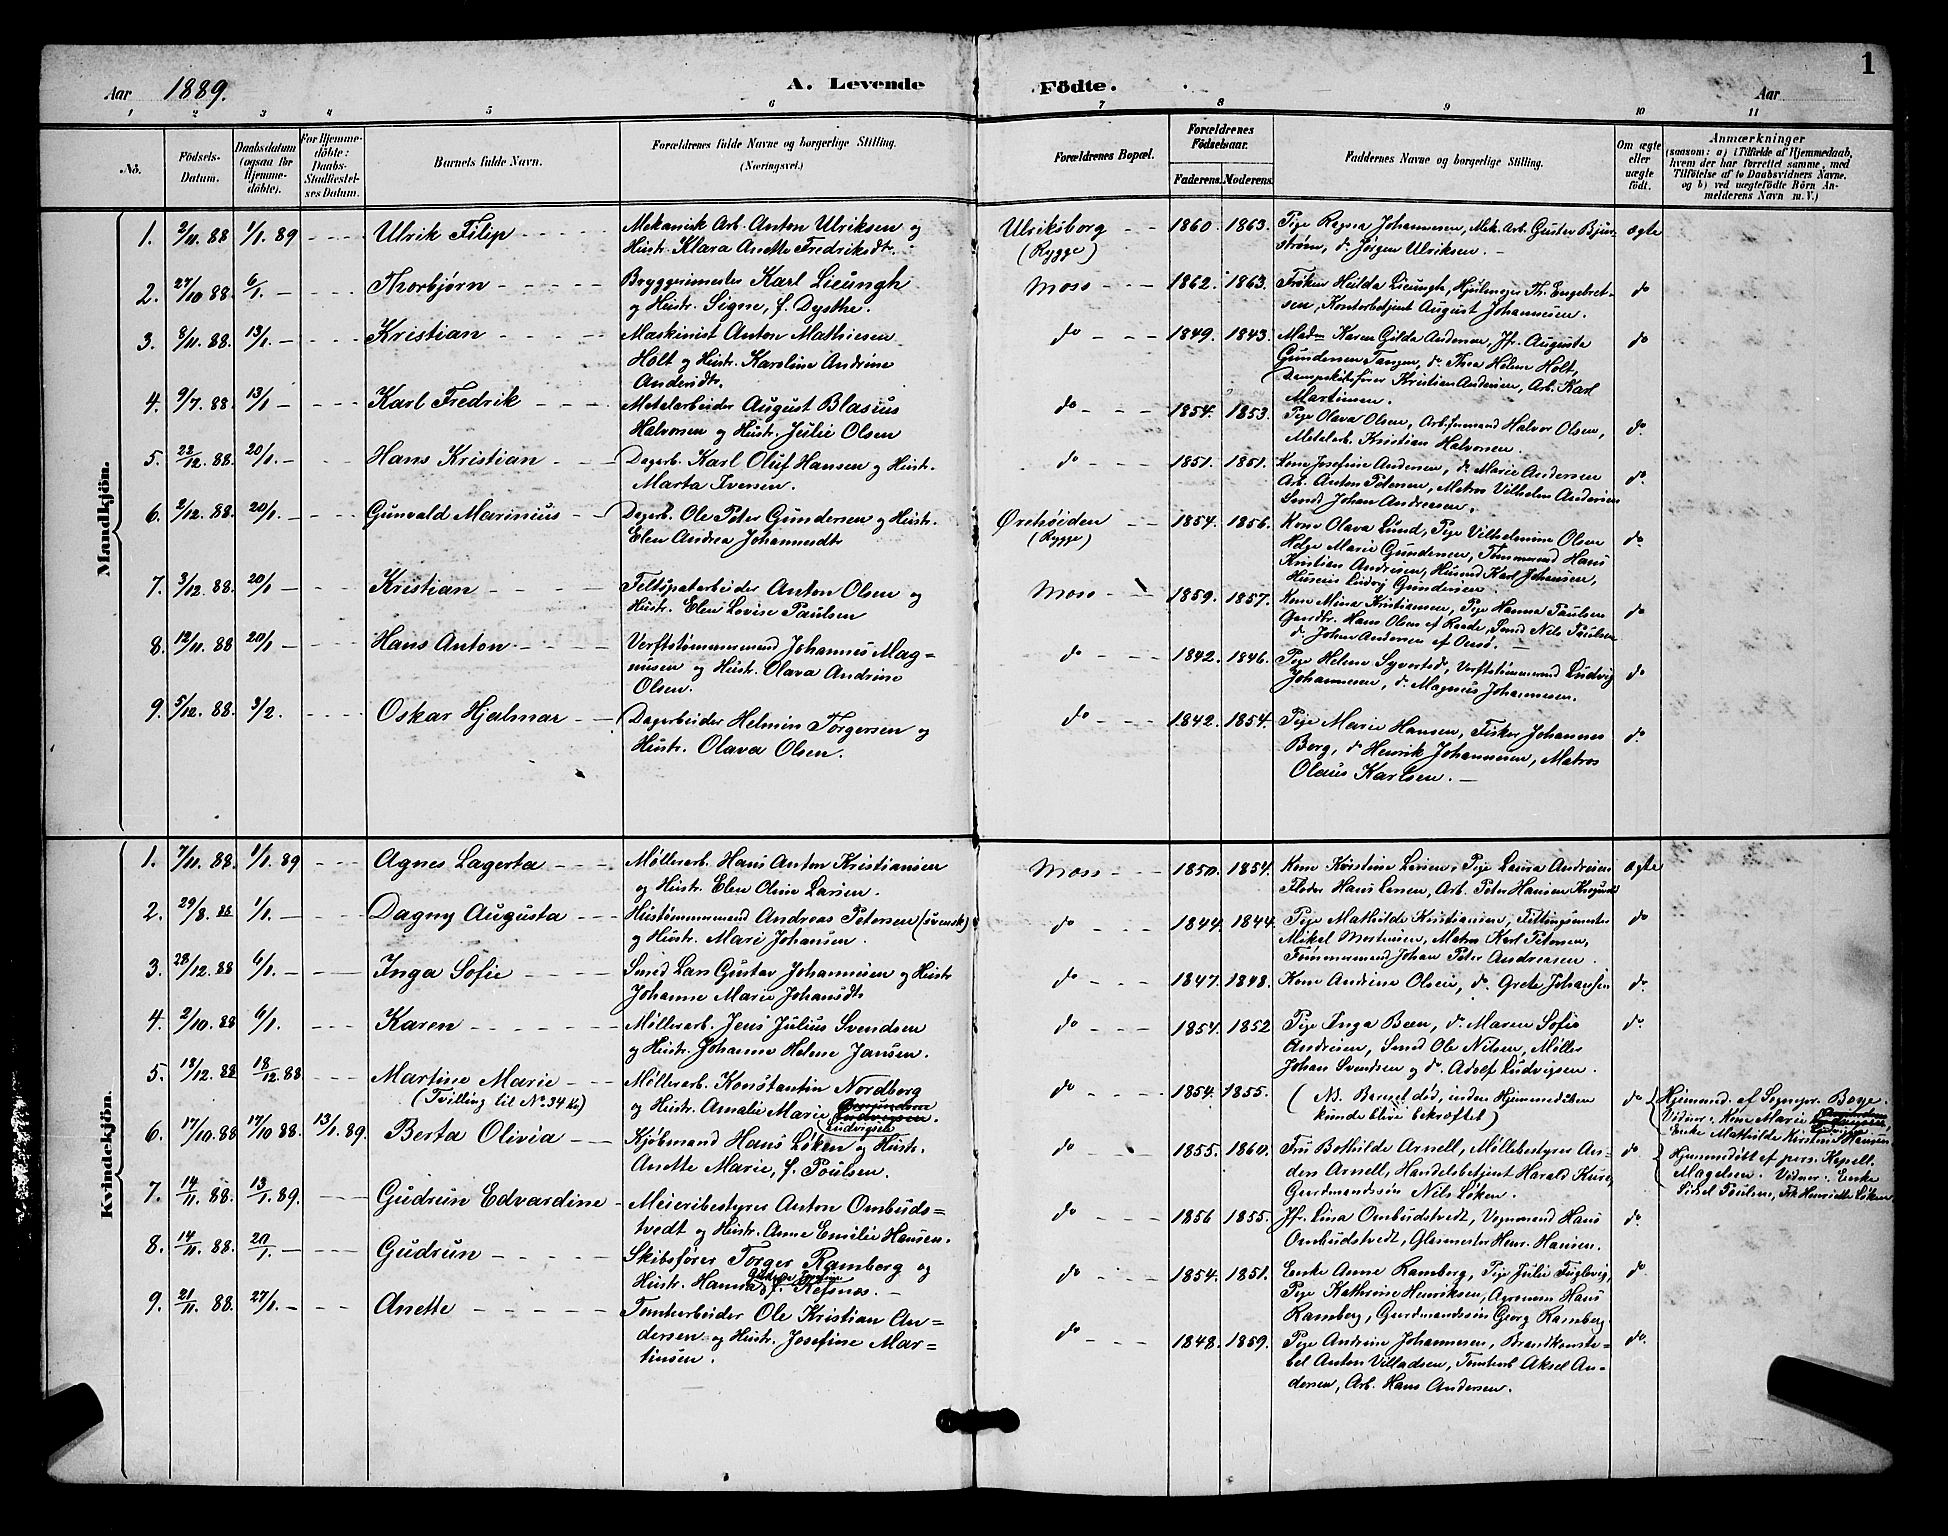 1
Aar 1889.
A. Levende Födte.
Aar
1 2 3 4 5 6 7 8 9 10 11
No.
Födsels-Datum.
Daabsdatum (ogsaa for Hjemmedöbte).
For Hjemmedöbte: Daabs-Stadfæstelses Datum.
Barnets fulde Navn.
Forældrenes fulde Navne og borgerlige Stilling. (Næringsvei.)
Forældrenes Bopæl.
Forældrenes Födselsaar.
Faderens. Moderens.
Faddernes Navne og borgerlige Stilling.
Om ægte eller uægte födt.
Anmærkninger
(saasom: a) i Tilfælde af Hjemmedaab,
hvem der har forrettet samme, med
Tilföielse af to Daabsvidners Navne.
og b) ved uægtefödte Börn An-
melderens Navn m.V.)
Mandkjön.
1. 2/11. 88 1/1. 89 - - - Ulrik Filip - - - -
Mekanisk Arb. Anton Ulriksen og
Hustr. Klara Anette Fredriksdt.
Ulriksborg (Rygge) 1860. 1863.
Pige Regna Johannesen, Mek. Arb. Gustav Bjur-
strøm, do Jørgen Ulriksen. -
ægte
2. 27/10 88. 6/1 - - - - Thorbjørn - - - - -
Bryggerimester Karl Lieungh
og Hustr. Signe, f. Dysthe.
Moss - - - 1862. 1863.
Frøken Hulda Lieungh, Hjulmager Th. Engebret-
sen, Kontorbetjent August Johannesen.
do
3. 8/11. 88. 13/1. - - - - Kristian - - - - -
Maskinist Anton Mathiesen
Holt og Hustr. Karoline Andrine
Andersdtr.
do - - - 1849. 1843.
Mad- Karen Gilda Andersen, Jfr. Augusta
Gundersen Tangen, do Thea Helene Holt,
Dampskibsfører Kristian Andersen, Arb. Karl
Martinsen.
do
4. 9/7. 88. 13/1 - - - - Karl Fredrik - - -
Metalarbeider August Blasius
Halvorsen og Hustr. Julie Olsen
do - - - 1854. 1853.
Pige Olava Olsen, Arb.formand Halvor Olsen,
Metalarb. Kristian Halvorsen.
do.
5. 22/12. 88. 20/1. - - - - Hans Kristian - - -
Dagarb. Karl Oluf Hansen og Hustr.
Marta Iversen.
do - - - 1851. 1861.
Kone Josefine Andersen, do Marie Andersen
Arb. Anton Petersen, Matros Vilhelm Andersen
Smed Johan Andreasen.
do.
6. 2/12. 88. 20/1. - - - - Gunvald Marinius - -
Dagarb. Ole Peter Gundersen og Hustr.
Elen Andrea Johannesdtr
Ørehøiden (Rygge) - - 1854. 1856.
Kone Olava Lund, Pige Vilhelmine Olsen
Helge Marie Gundersen, Tømmermand Hans
Kristian Andresen, Husmd Karl Johansen,
Ludvig Gundersen.
do.
7. 3/12. 88. 20/1 - - - - Kristian - - - - -
Feltspatarbeider Anton Olsen og
Hustr. Elen Lovise Paulsen
Moss - - 1859. 1857.
Kone Mina Kristiansen, Pige Hanna Paulsen
Hans Olsen af Raade, Smed Nils Paulsen
do Johan Andersen af Onsø. -
do
8. 12/11. 88 20/1 - - - - Hans Anton - - - -
Verftstømmermand Johannes Mag-
nussen og Hustr. Olava Andrine
Olsen.
do - - - 1842. 1846.
Pige Helene Syversted, Verftstømmermand Ludvig
Johannesen, do Magnus Johannesen.
do
9. 5/12. 88. 3/2. - - - Oskar Hjalmar - -
Dagarbeider Helmin Torgersen og
Hustr. Olava Olsen.
do - - - 1842. 1854.
Pige Marie Hansen, Fisker Johannes
Berg, do Henrik Johannesen, Matros
Olaus Karlsen. -
do.
Kvindekjön.
1. 7/11. 88. 1/1. 89 - - - Agnes Lagerta - - -
Møllerarb. Hans Anton Kristiansen
og Hustr. Elen Oline Larsen.
Moss - - - 1850. 1854.
Kone Kristine Larsen, Pige Laura Andresen
Fløder Hans Larsen, Arb. Peter Hansen
ægte
2. 29/8. 88 1/1. - - - - Dagny Augusta - - -
Hustømmermand Andreas Petersen (svensk)
og Hustr. Mari Johansen.
do - - - 1844. 1844.
Pige Mathilde Kristiansen, Fittingsmester
Mikal Mortensen, Matros Karl Petersen,
Tømmermand Johan Peter Andreasen.
do
3. 28/12. 88 6/1. - - - Inga Sofie - - - -
Smed Lars Gustav Johannesen og Hustr.
Johanne Marie Johansdtr
do - - - 1847. 1848.
Kone Andrine Olsen, do. Grete Johansen
do.
4. 2/10. 88 6/1. - - - Karen - - - - -
Møllerarb. Jens Julius Svendsen
og Hustr. Johanne Helene Jansen.
do - - - 1854. 1852
Pige Inga Been, do. Maren Sofie
Andresen, Smed Ole Nilsen, Møller
Johan Svendsen og do. Adolf Ludvigsen.
do.
5. 18/12. 88 18/12. 88 - - - Martine Marie - -
(Tvilling til No. 34 Kv)
Møllerarb. Konstantin Nordberg
og Hustr. Amalie Marie Ludvigsen.
Ludvigsen
do - - - 1854. 1855.
(NB. Barnet død, inden Hjemmedaaben
kunde blive bekræftet)
do
Hjemmed. af Sognepr. Borge.
Vidner: Kone Marie Ludvigsen,
Enke Mathilde Kirstine Hansen
6. 17/10. 88 17/10. 88. 13/1. 89. Berta Olivia - -
Kjøbmand Hans Løken og Hustr.
Anette Marie, f. Poulsen.
do - - - 1855. 1860.
Fru Bothilde Arnell, Møllebestyrer An-
ders Arnell, Handelsbetjent Harald Kure,
Gaardmandssøn Nils Løken.
do
Hjemmedøbt af pers. Kapell.
Magelssen. Vidner: Enke
Sibel Poulsen, Frk Henriette Løken
7. 14/11. 88. 13/1. 89. - - - Gudrun Edvardine -
Meieribestyrer Anton Ombuds-
tvedt og Hustr. Anne Emilie Hansen.
do - - - 1856 1855.
Jfr. Lina Ombudstvedt, Vognmand Hans
Ombudstvedt, Glasmester Henr. Hansen.
do.
8. 14/11. 88. 20/1. - - - Gudrun - - - - -
Skibsfører Torger Ramberg og
Hustr. Hanna f. Refsnes. -
do - - - 1854. 1851.
Enke Anne Ramberg, Pige Julie Fuglevig,
Pige Kathrine Henriksen, Agronom Hans
Ramberg, Gaardmandssøn Georg Ramberg.
do.
9. 21/11. 88. 27/1. - - - Anette - - - - -
Tomtearbeider Ole Kristian An-
dersen og Hustr. Josefine Mar-
tinsen.
do - - - 1848. 1859.
Pige Andrine Johannesen, Brandkonsta-
bel Anton Villadsen, Tomtarb Aksel An-
dersen, Arb. Hans Andersen.
do.